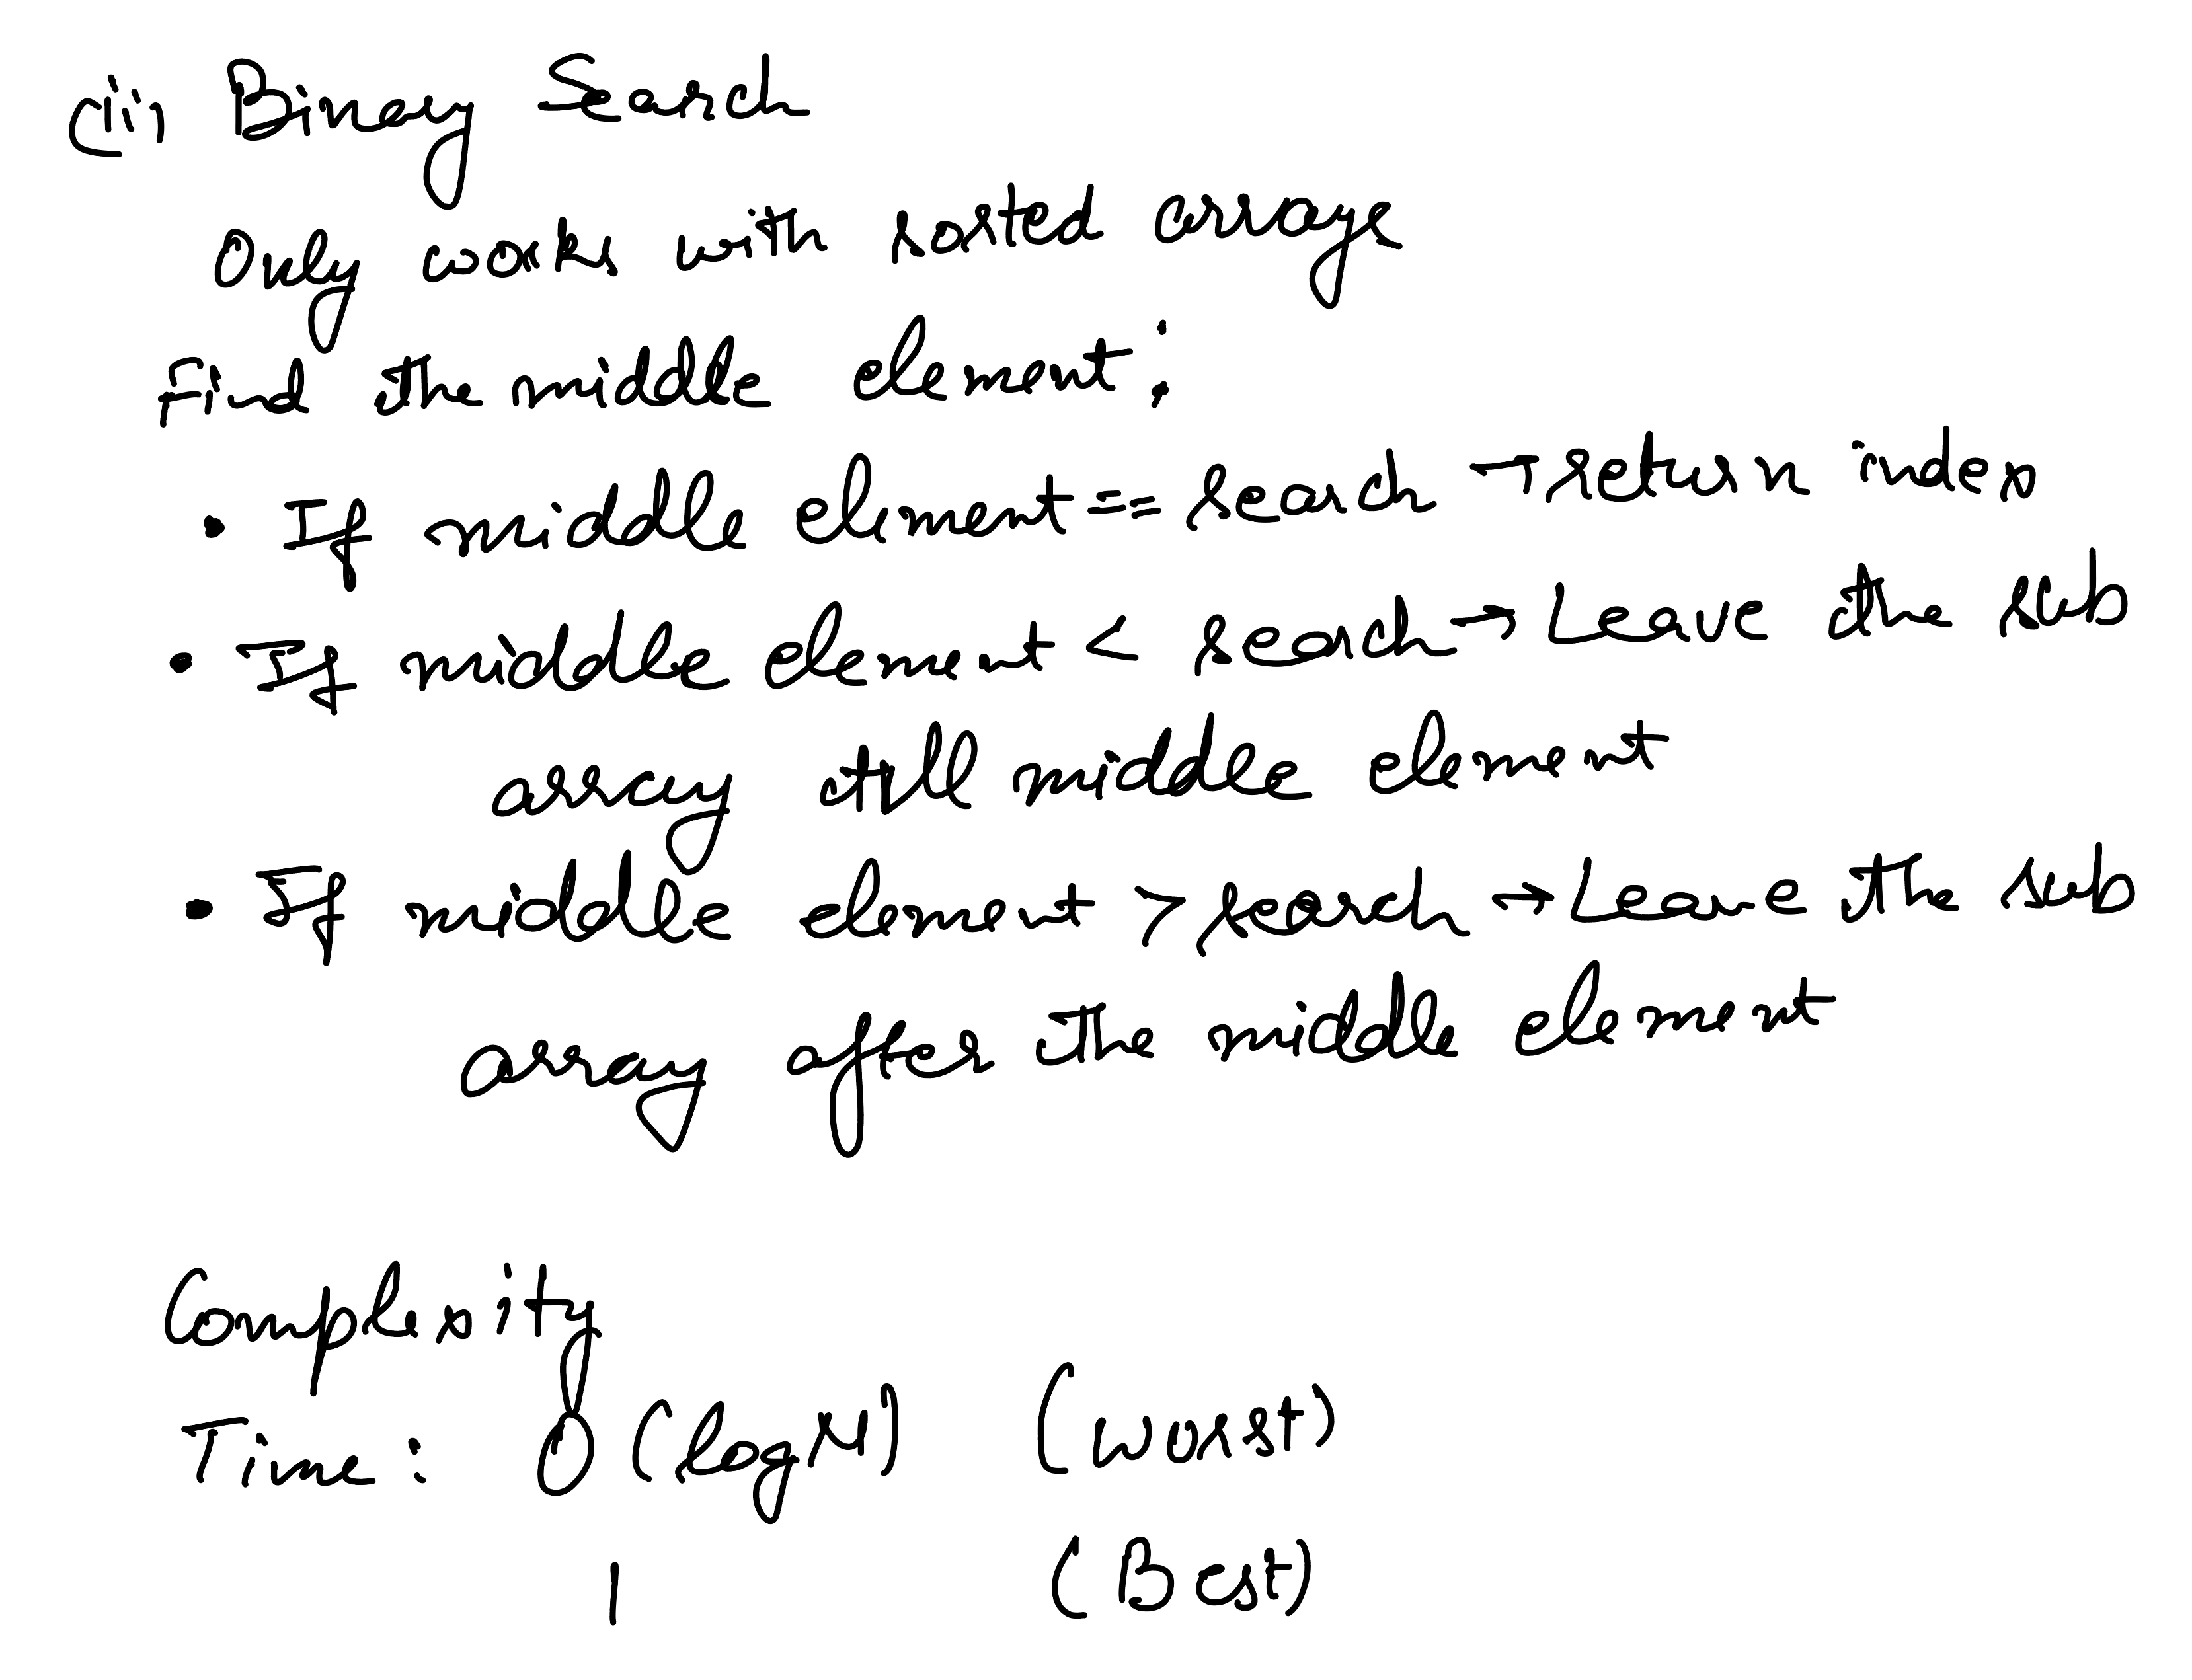 (ii) Binary Search
Only works with sorted arrays
Find the middle element:
• If middle element == search → return index
• If middle element < search → Leave the sub
array till middle element
• If middle element > search → Leave the sub
array after the middle element
Complexity
Time: O(log N) (worst)
1 (Best)